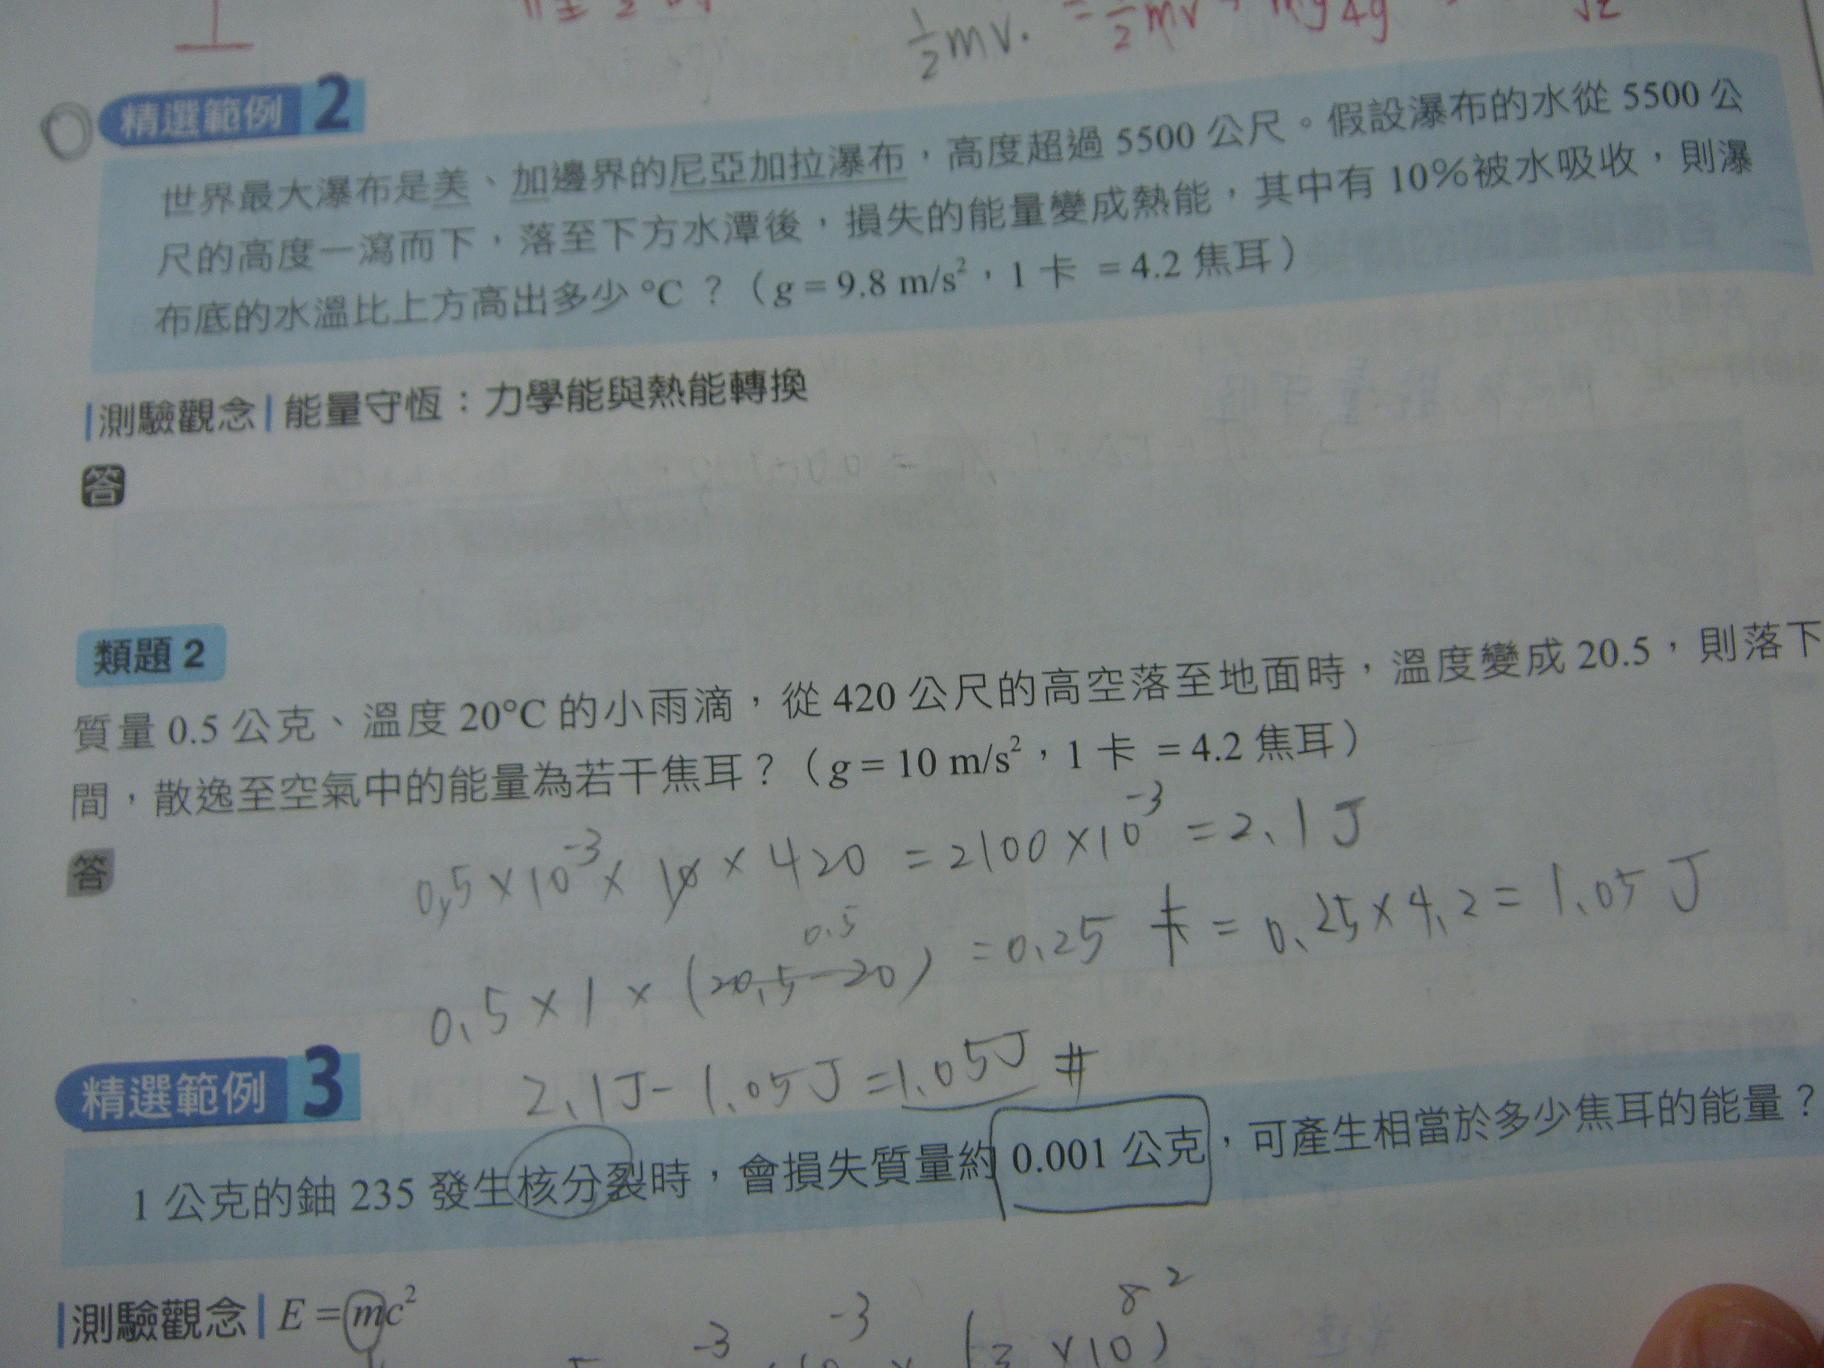 ½mv. = ½mv + mg
精選範例 2
世界最大瀑布是美、加邊界的尼亞加拉瀑布，高度超過 5500 公尺。假設瀑布的水從 5500 公
尺的高度一瀉而下，落至下方水潭後，損失的能量變成熱能，其中有 10%被水吸收，則瀑
布底的水溫比上方高出多少 °C ？（g = 9.8 m/s²，1 卡 = 4.2 焦耳）
|測驗觀念| 能量守恆：力學能與熱能轉換
答
類題 2
質量 0.5 公克、溫度 20°C 的小雨滴，從 420 公尺的高空落至地面時，溫度變成 20.5，則落下
間，散逸至空氣中的能量為若干焦耳？（g = 10 m/s²，1 卡 = 4.2 焦耳）
答
0.5 × 10⁻³ × 10 × 420 = 2100 × 10⁻³ = 2.1 J
0.5
0.5 × 1 × (20.5 - 20) = 0.25 卡 = 0.25 × 4.2 = 1.05 J
2.1J - 1.05J = 1.05J #
精選範例 3
1 公克的鈾 235 發生核分裂時，會損失質量約 0.001 公克，可產生相當於多少焦耳的能量？
|測驗觀念| E = mc²
(3 × 10⁸)²